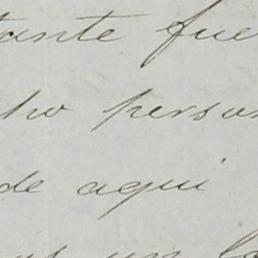 tante fue
ho person
de aqui
un